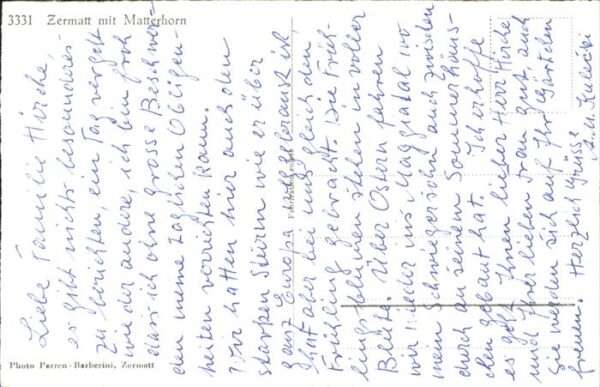 3331 Zermatt mit Matterhorn
Liebe Familie Hirche,
es gibt nichts besonderes
zu berichten, ein Tag vergeht
wie der andere, ich bin froh
dass ich ohne grosse Beschwer-
den meine täglichen Obliegen-
heiten verrichten kann.
Wir hatten hier auch den
starken Sturm wie er über
ganz Europa war,
hat aber bei uns gleich den
Frühling gebracht. Die Früh-
lingsblumen stehen in voller
Blüte. Über Ostern fahren
wir wieder ins Maggiatal wo
mein Schwiegersohn auch zwischen
durch an seinem Sommerhäus-
chen gebaut hat. Ich hoffe
es geht Ihnen lieber Herr Hirche
und Ihrer lieben Frau gut, auch
Sie werden sich auf Ihr Gärtchen
freuen. Herzlich Grüsse
Photo Perren-Barberini, Zermatt